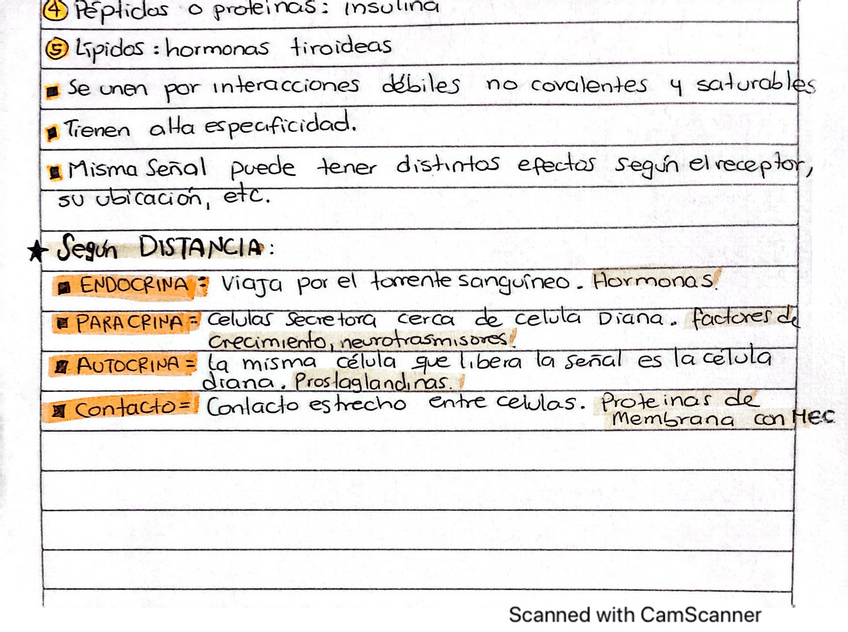 ④ Péptidos o proteinas: insulina
⑤ Lipidos: hormonas tiroideas
▪ Se unen por interacciones débiles no covalentes y saturables
▪ Tienen alta especificidad.
▪ Misma Señal puede tener distintos efectos según el receptor,
su ubicación, etc.
★ Según DISTANCIA:
▪ ENDOCRINA = Viaja por el torrente sanguíneo. Hormonas.
▪ PARACRINA = Celulas secretora cerca de celula Diana. factores de
crecimiento, neurotrasmisores.
▪ AUTOCRINA = La misma célula que libera la señal es la célula
diana. Prostaglandinas.
▪ Contacto = Contacto estrecho entre celulas. Proteinas de
Membrana con MEC
Scanned with CamScanner